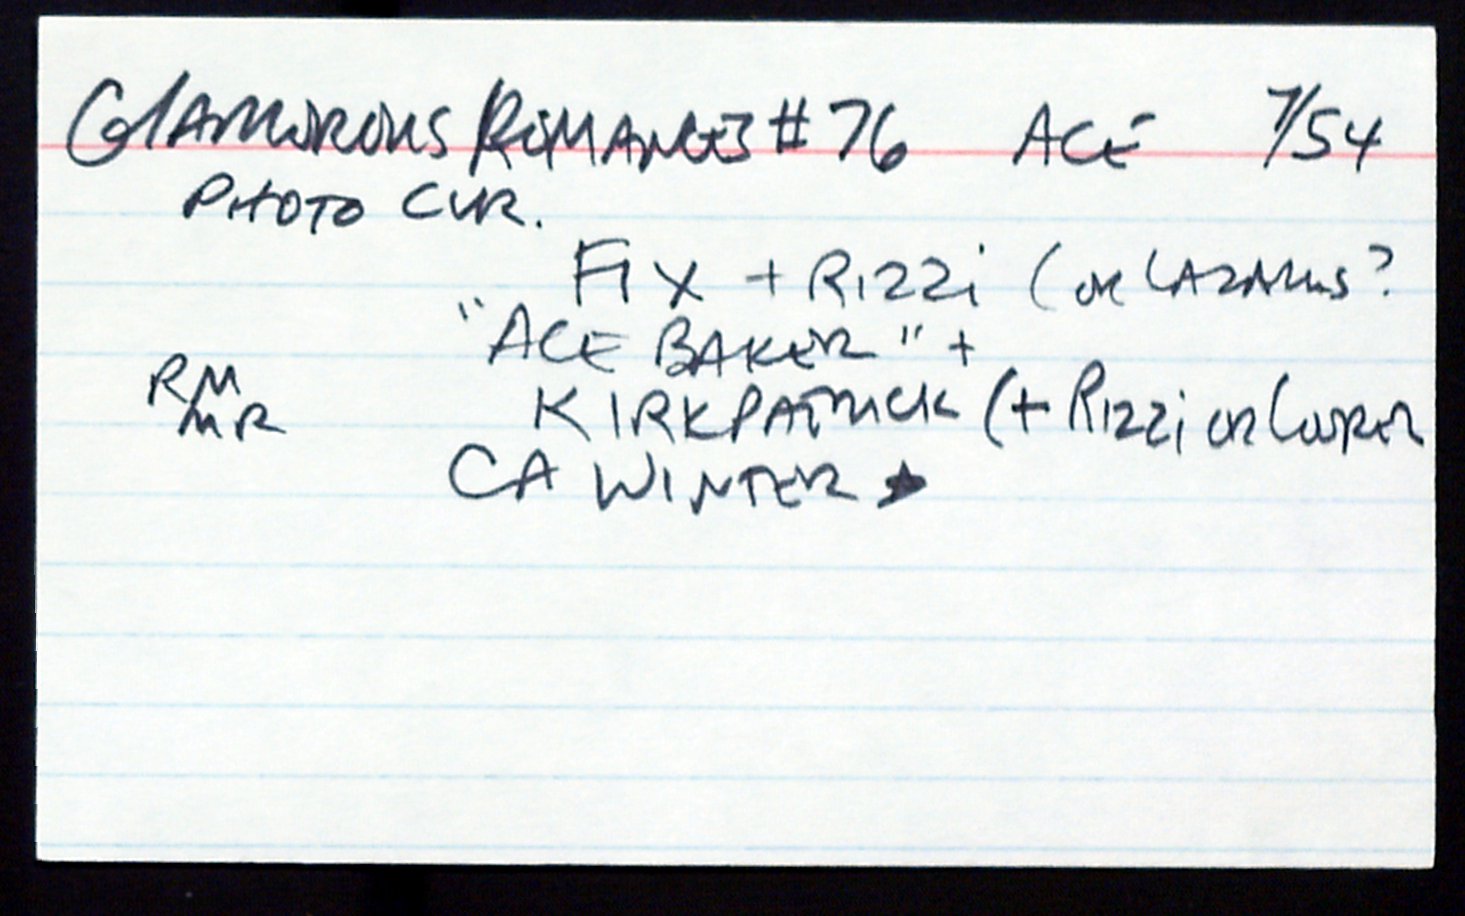 GLAMOROUS ROMANCES #76 ACE 7/54
PHOTO CVR.
FIX + RIZZI (OR LAZARUS?
"ACE BAKER" +
RM KIRKPATRICK (+ RIZZI OR
MR
CA WINTER